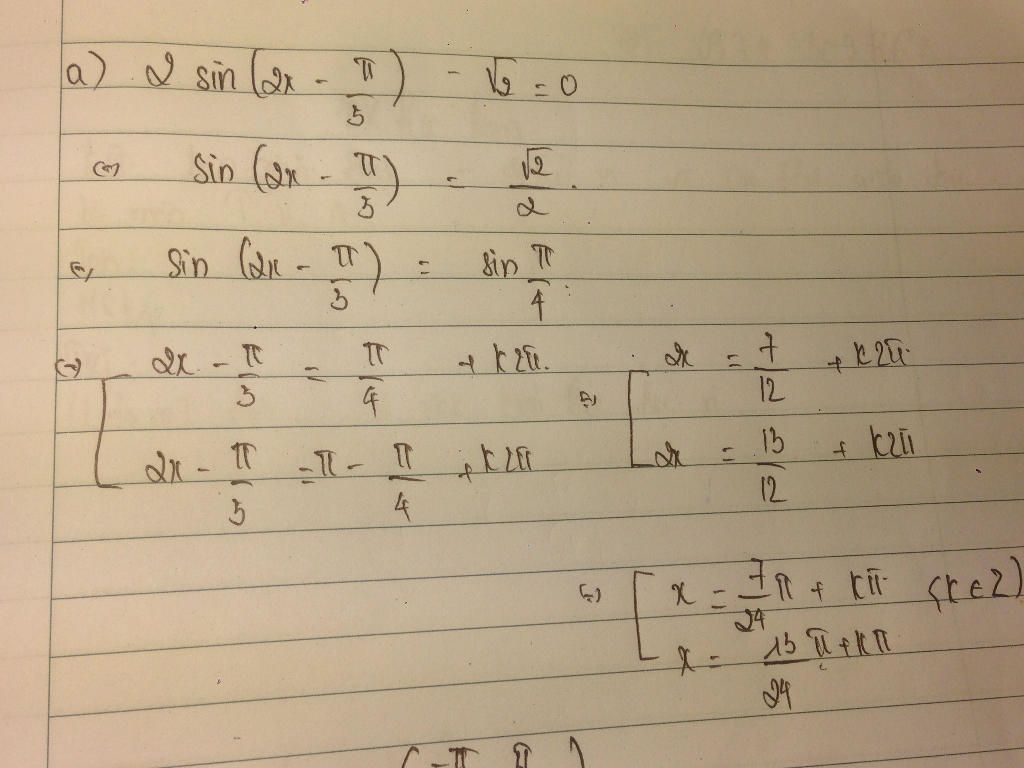 a) 2 sin (2x - π/3) - √2 = 0
⇔ sin (2x - π/3) = √2/2.
⇔ sin (2x - π/3) = sin π/4.
⇔ [ 2x - π/3 = π/4 + k2π. ⇔ [ 2x = 7/12 + k2π.
2x - π/3 = π - π/4 + k2π 2x = 13/12 + k2π
⇔ [ x = 7/24 π + kπ (k ∈ Z)
x = 13/24 π + kπ